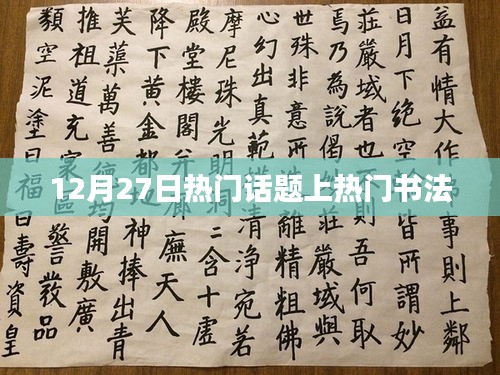 益有情大作事則上鄰
日月下絕空皆所謂妙
莊嚴域者也則吾何取
焉乃為說偈莊嚴域與
世殊非意所離精粗佛
心幻出真範清淨宛若
摩尼珠光明二含十虛
殿堂樓閣并廡天人
降下黃金都神捧出青
芙蕖萬善開敷廣
推祖道充寰區警發品
類空泥塗曰福曰壽資皇
12月27日热门话题上热门书法